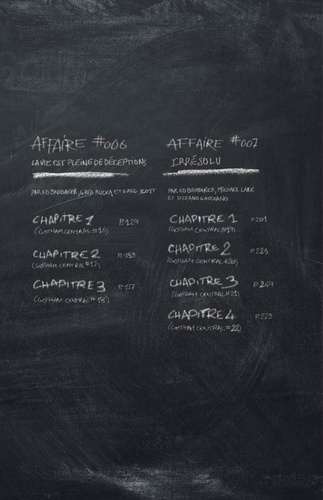 AFFAIRE #006
LA VIE EST PLEINE DE DÉCEPTIONS
PAR ED BRUBAKER, GREG RUCKA ET GREG SCOTT
CHAPITRE 1 P.129
(GOTHAM CENTRAL #16)
CHAPITRE 2 P.153
(GOTHAM CENTRAL #17)
CHAPITRE 3 P.177
(GOTHAM CENTRAL #18)
AFFAIRE #007
IRRÉSOLU
PAR ED BRUBAKER, MICHAEL LARK
ET STEFANO GAUDIANO
CHAPITRE 1 P.201
(GOTHAM CENTRAL #19)
CHAPITRE 2 P.225
(GOTHAM CENTRAL #20)
CHAPITRE 3 P.249
(GOTHAM CENTRAL #21)
CHAPITRE 4 P.273
(GOTHAM CENTRAL #22)